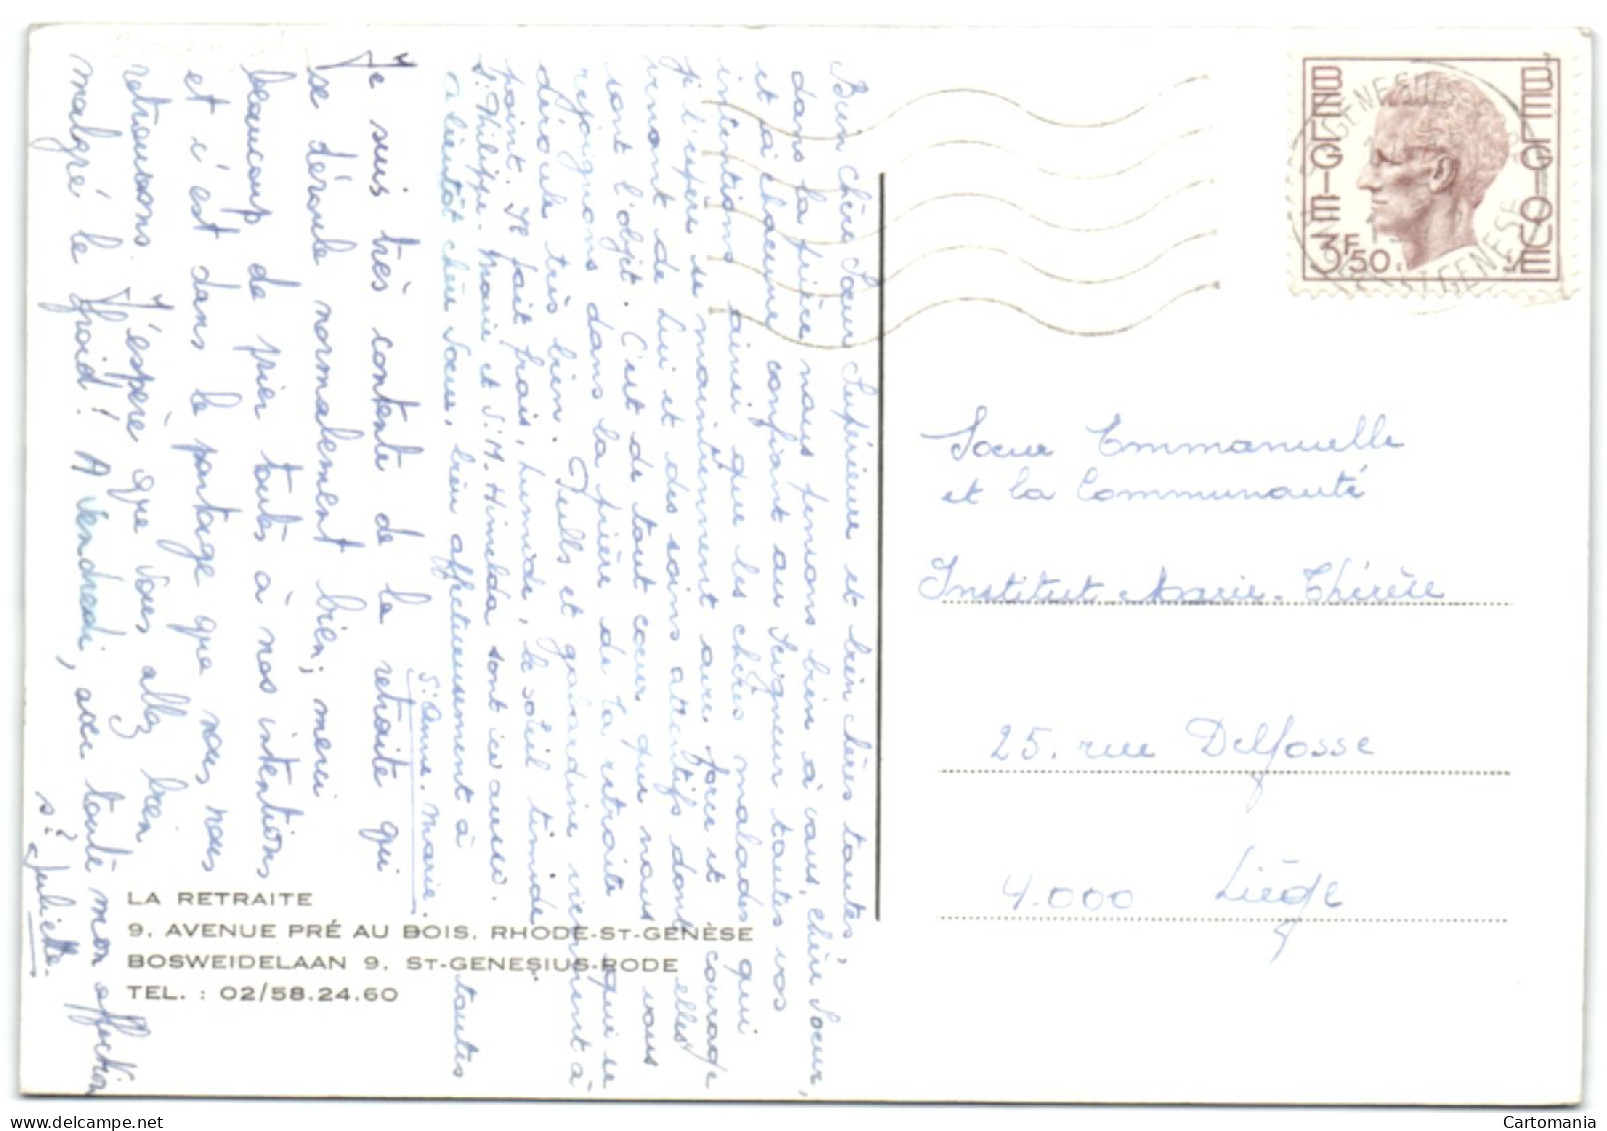 Bien chère Sœur Supérieure et bien chères toutes,
dans la prière nous pensons bien à vous, chère Soeur,
et à chacune confiant au Seigneur toutes vos
intentions ainsi que les chères malades qui
je l'espère se maintiennent avec force et courage
venant de Lui et des soins attentifs dont elles
sont l'objet. C'est de tout coeur que nous vous
rejoignons dans la prière de la retraite qui se
déroule très bien. Pulls et gabardine viennent à
point. Il fait frais, humide, le soleil timide.
Sr Philippe-Marie et Sr M. Himelda sont ici aussi.
à bientôt chère Soeur, bien affectueusement à toutes
Sr Anne-Marie.
Je suis très contente de la retraite qui
se déroule normalement bien; merci
beaucoup de prier toutes à nos intentions
et c'est dans le partage que nous nous
retrouvons. J'espère que vous allez bien
malgré le froid! A Vendredi, avec toute mon affection
Sr Juliette.
LA RETRAITE
9. AVENUE PRÉ AU BOIS. RHODE-ST-GENÈSE
BOSWEIDELAAN 9. ST-GENESIUS-RODE
TEL. : 02/58.24.60
BELGIE
BELGIQUE
3F50
Soeur Emmanuelle
et la Communauté
Institut Marie-Thérèse
25. rue Delfosse
4.000 Liège
Cartomania